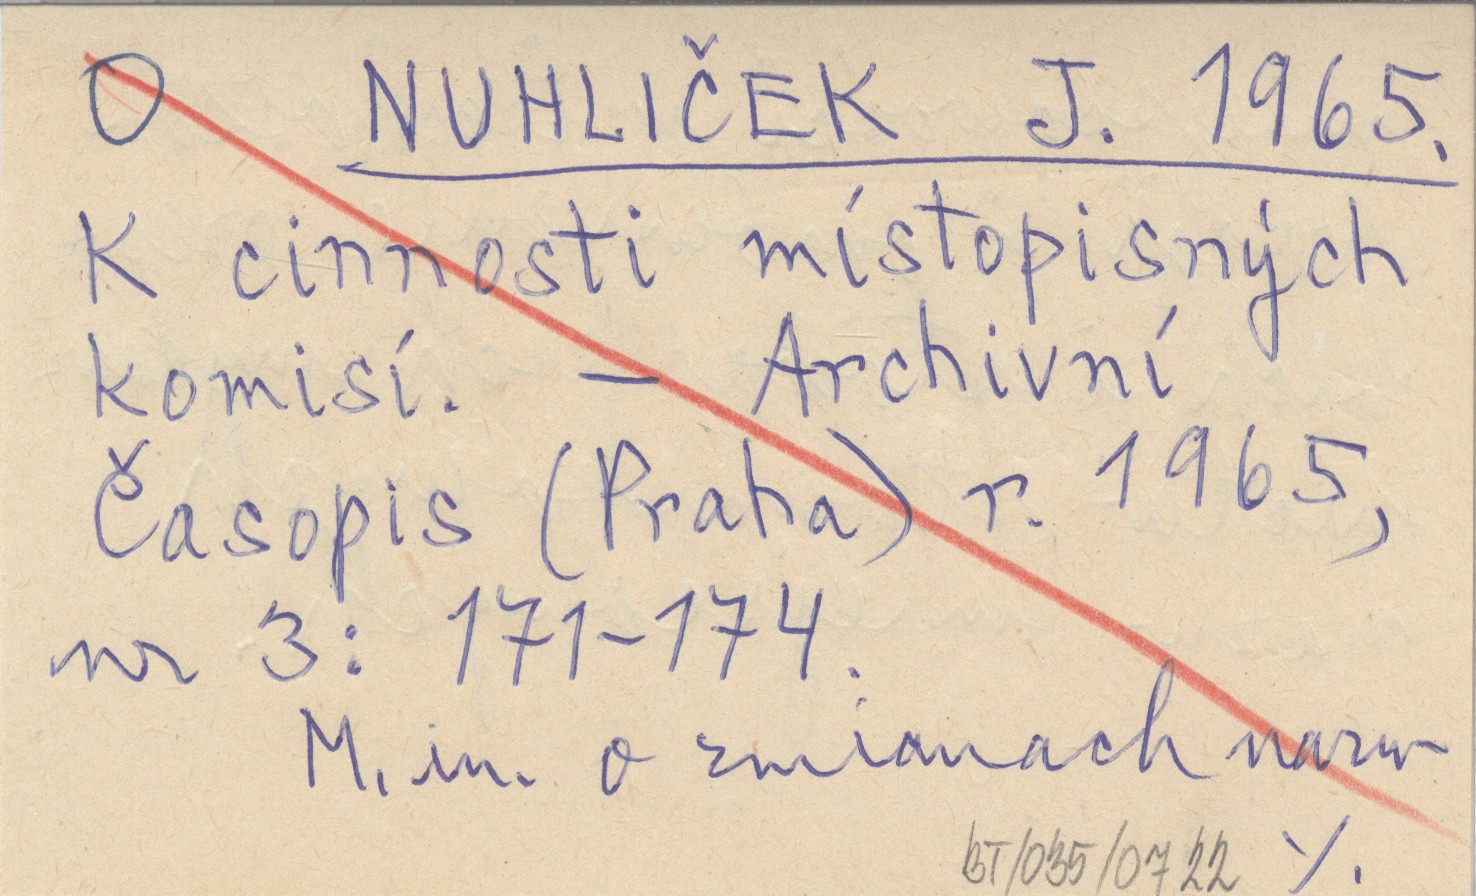 O NUHLIČEK J. 1965.
K cinnosti místopisných
komisí. – Archivní
Časopis (Praha) r. 1965,
nr 3: 171-174.
M. in. o zmianach nazw
BT/035/0722 ./.